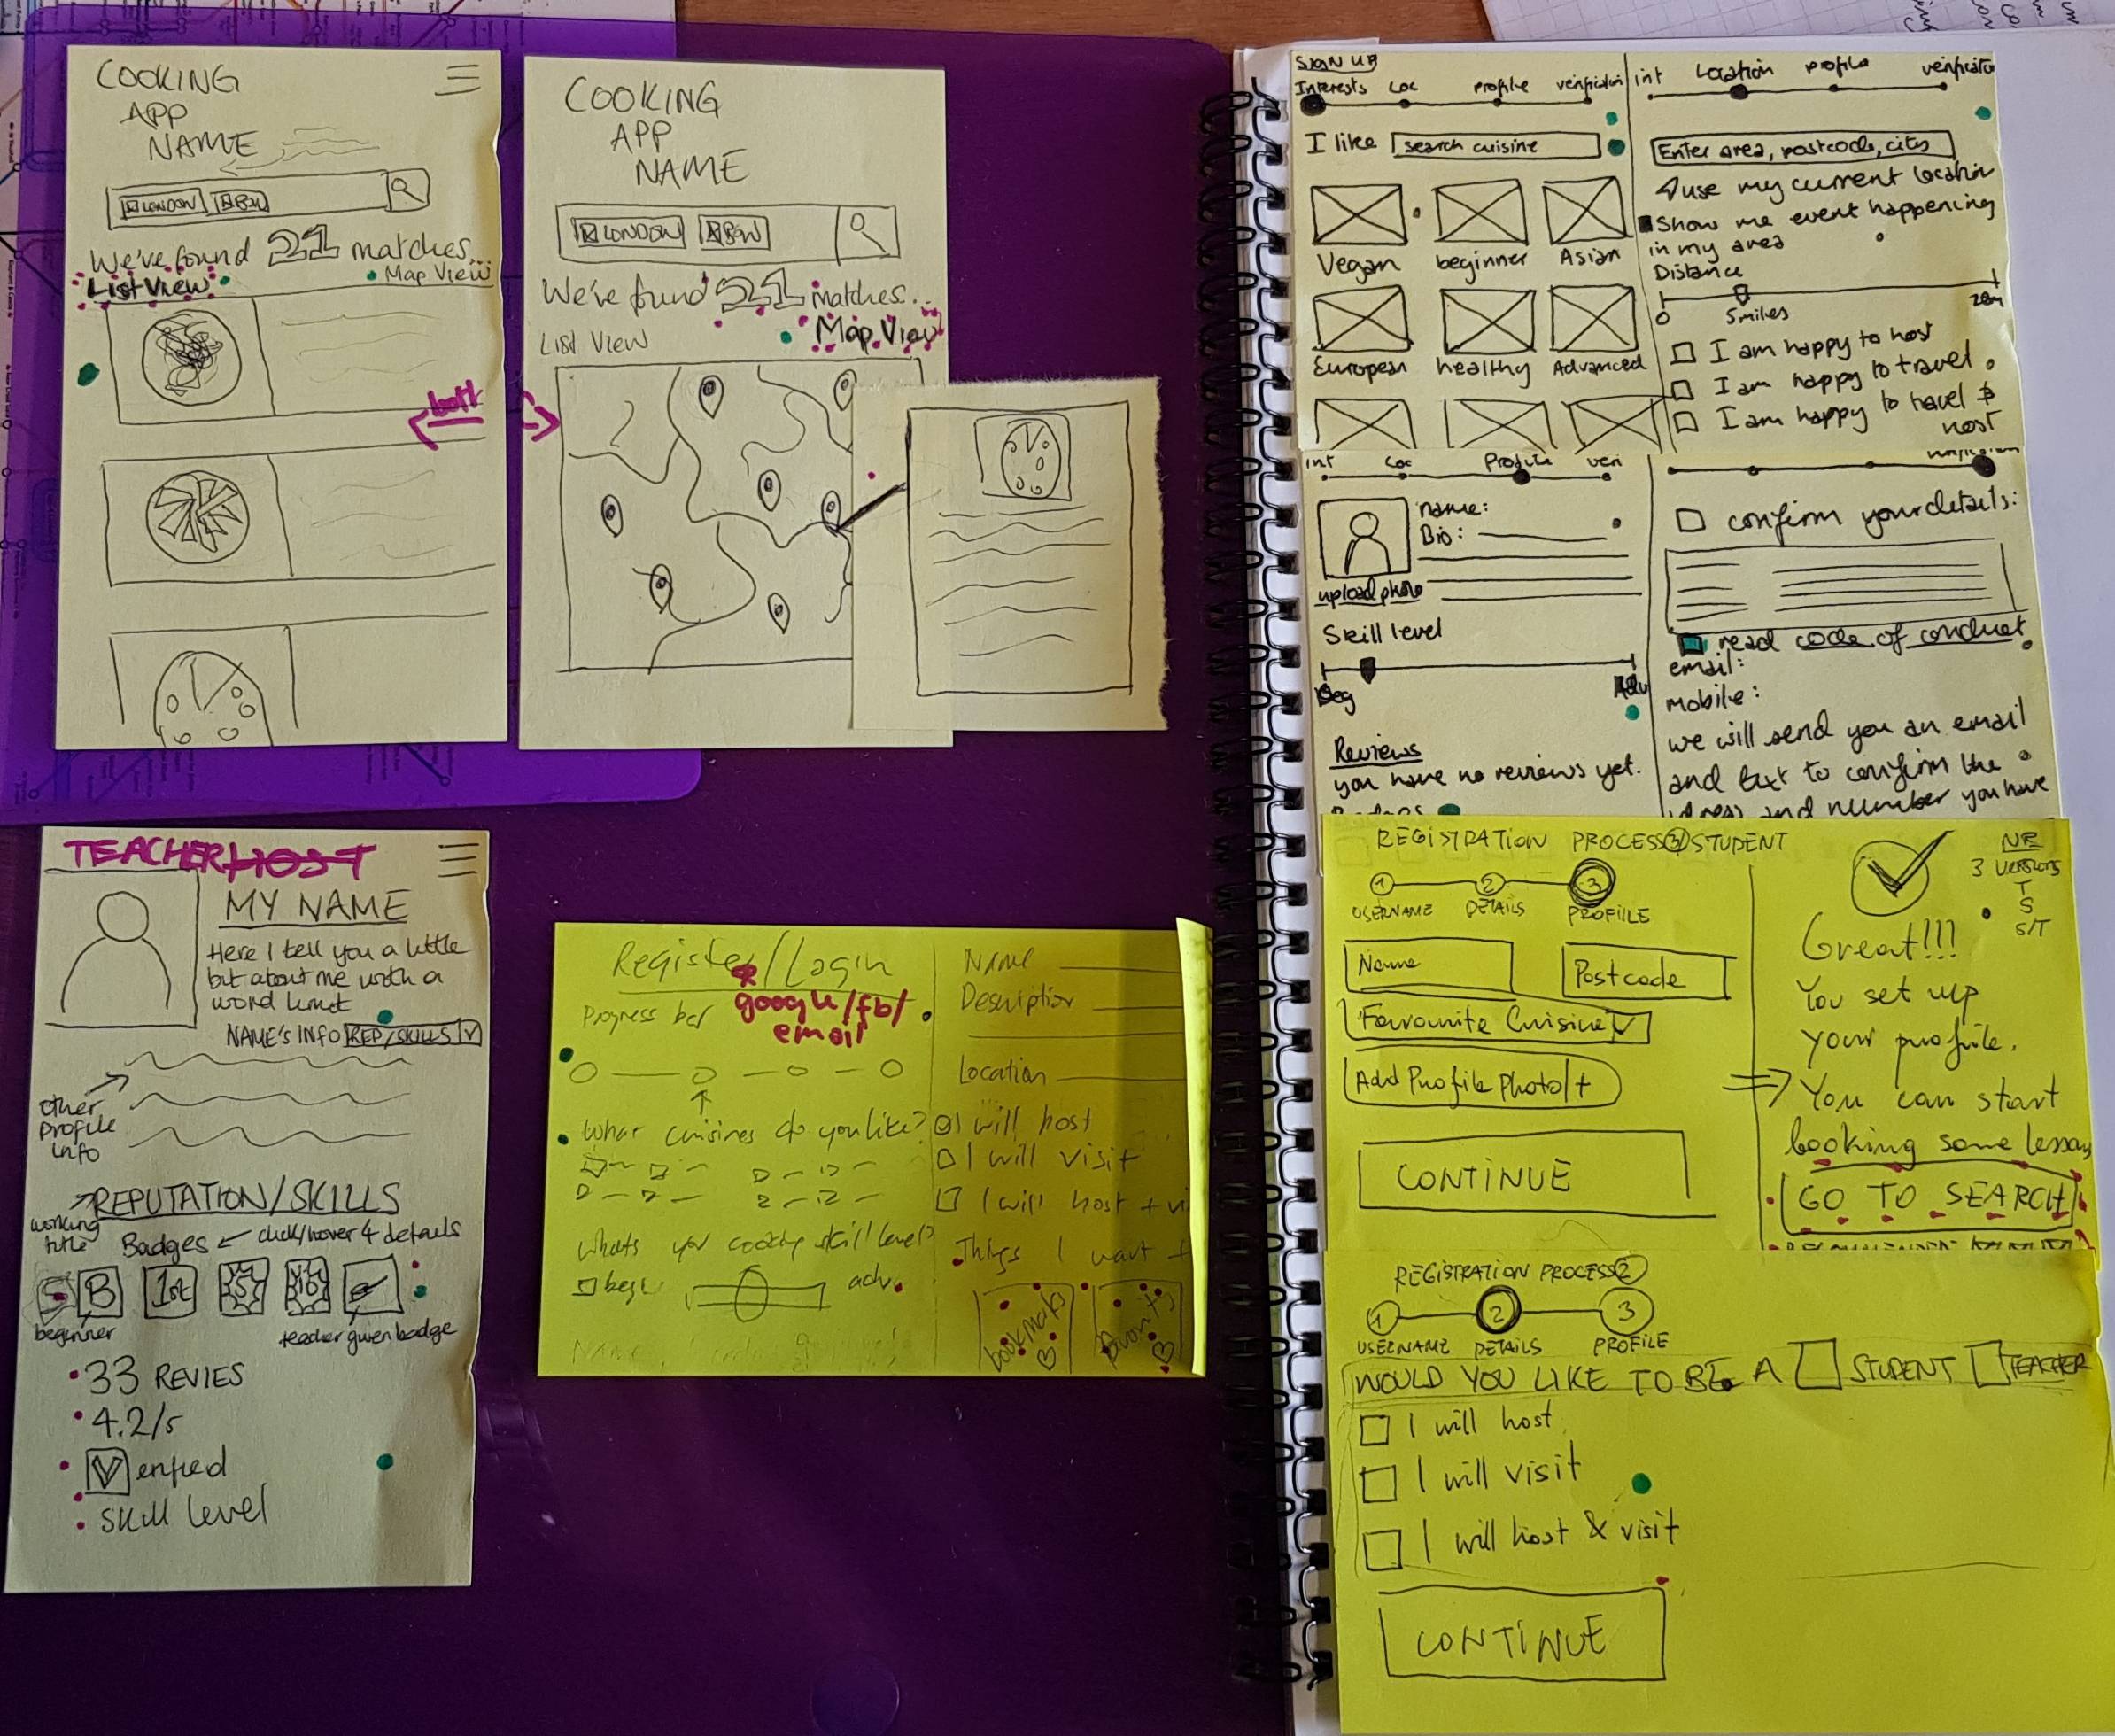 COOKING
APP
NAME
LONDON
We've found 21 matches...
List View
Map View
both
COOKING
APP
NAME
LONDON
We've found 21 matches...
List View
Map View
TEACHER HOST
MY NAME
Here I tell you a little
but about me with a
word limit
NAME'S INFO REP/SKILLS
other
Profile
info
REPUTATION/SKILLS
working
title
Badges click/hover 4 details
B 1st 5 10
beginner
teacher given badge
33 REVIES
4.2/5
V erified
skill level
Register/Login
Progress bar
google/fb/
email
What cuisines do you like?
Whats your cooking skill level?
beg adv.
Name
Description
Location
I will host
I will visit
I will host + vi
Things I want
bookmarks
favourits
SIGN UP
Interests Loc profile verification
I like search cuisine
Vegan beginner Asian
European healthy Advanced
int Location profile
Enter area, postcode, city
use my current location
Show me event happening
in my area
Distance
0 5miles
I am happy to host
I am happy to travel
I am happy to travel &
host
int Loc Profile veri
name:
Bio:
upload photo
Skill level
Beg Adv
Reviews
you have no reviews yet.
confirm your details:
read code of conduct
email:
mobile:
we will send you an email
and text to confirm the
and number you have
REGISTRATION PROCESS 3 STUDENT
1 2 3
USERNAME DETAILS PROFIILE
Name
Postcode
Favourite Cuisine
Add Profile Photo +
CONTINUE
3 VERSIONS
T
S
S/T
Great!!!
You set up
your profile.
You can start
booking some lessons
GO TO SEARCH
REGISTRATION PROCESS 2
1 2 3
USERNAME DETAILS PROFILE
WOULD YOU LIKE TO BE A STUDENT TEACHER
I will host
I will visit
I will host & visit
CONTINUE